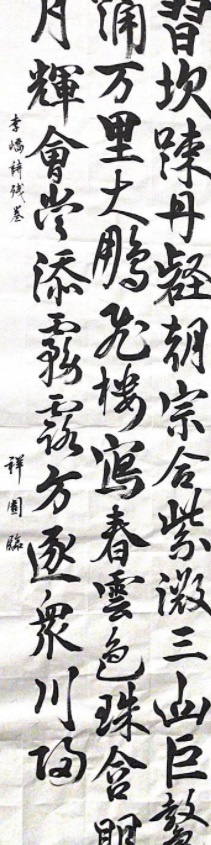 習坎踈丹壑朝宗合紫微三山巨鼇
涌万里大鵬飛樓寫春雲色珠含明
月輝會當添霧露方逐衆川歸
李嶠詩殘卷
祥園臨